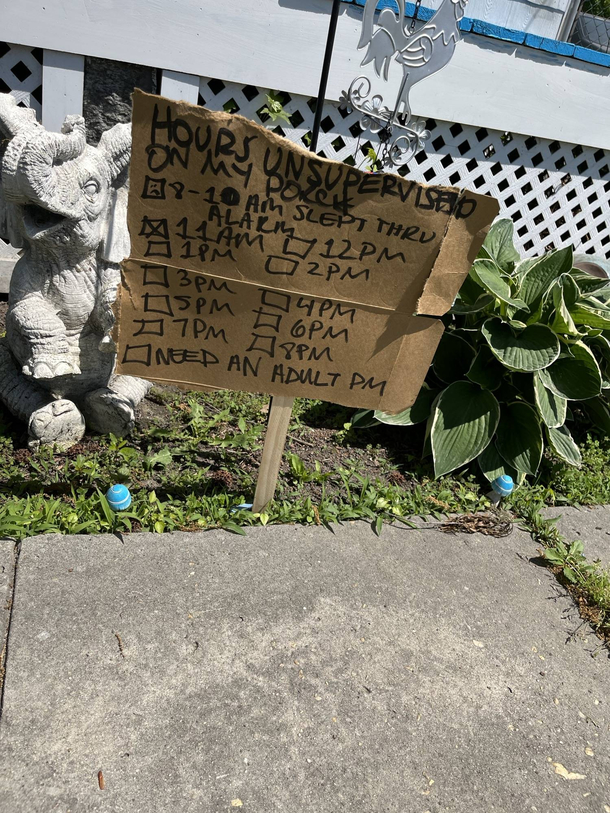 HOURS UNSUPERVISED
ON MY PORCH
☒ 8-10 AM SLEPT THRU
ALARM
☒ 11 AM ☐ 12PM
☐ 1PM ☐ 2PM
☐ 3PM
☐ 5PM ☐ 4PM
☐ 7PM ☐ 6PM
☐ 8PM
☐ NEED AN ADULT DM